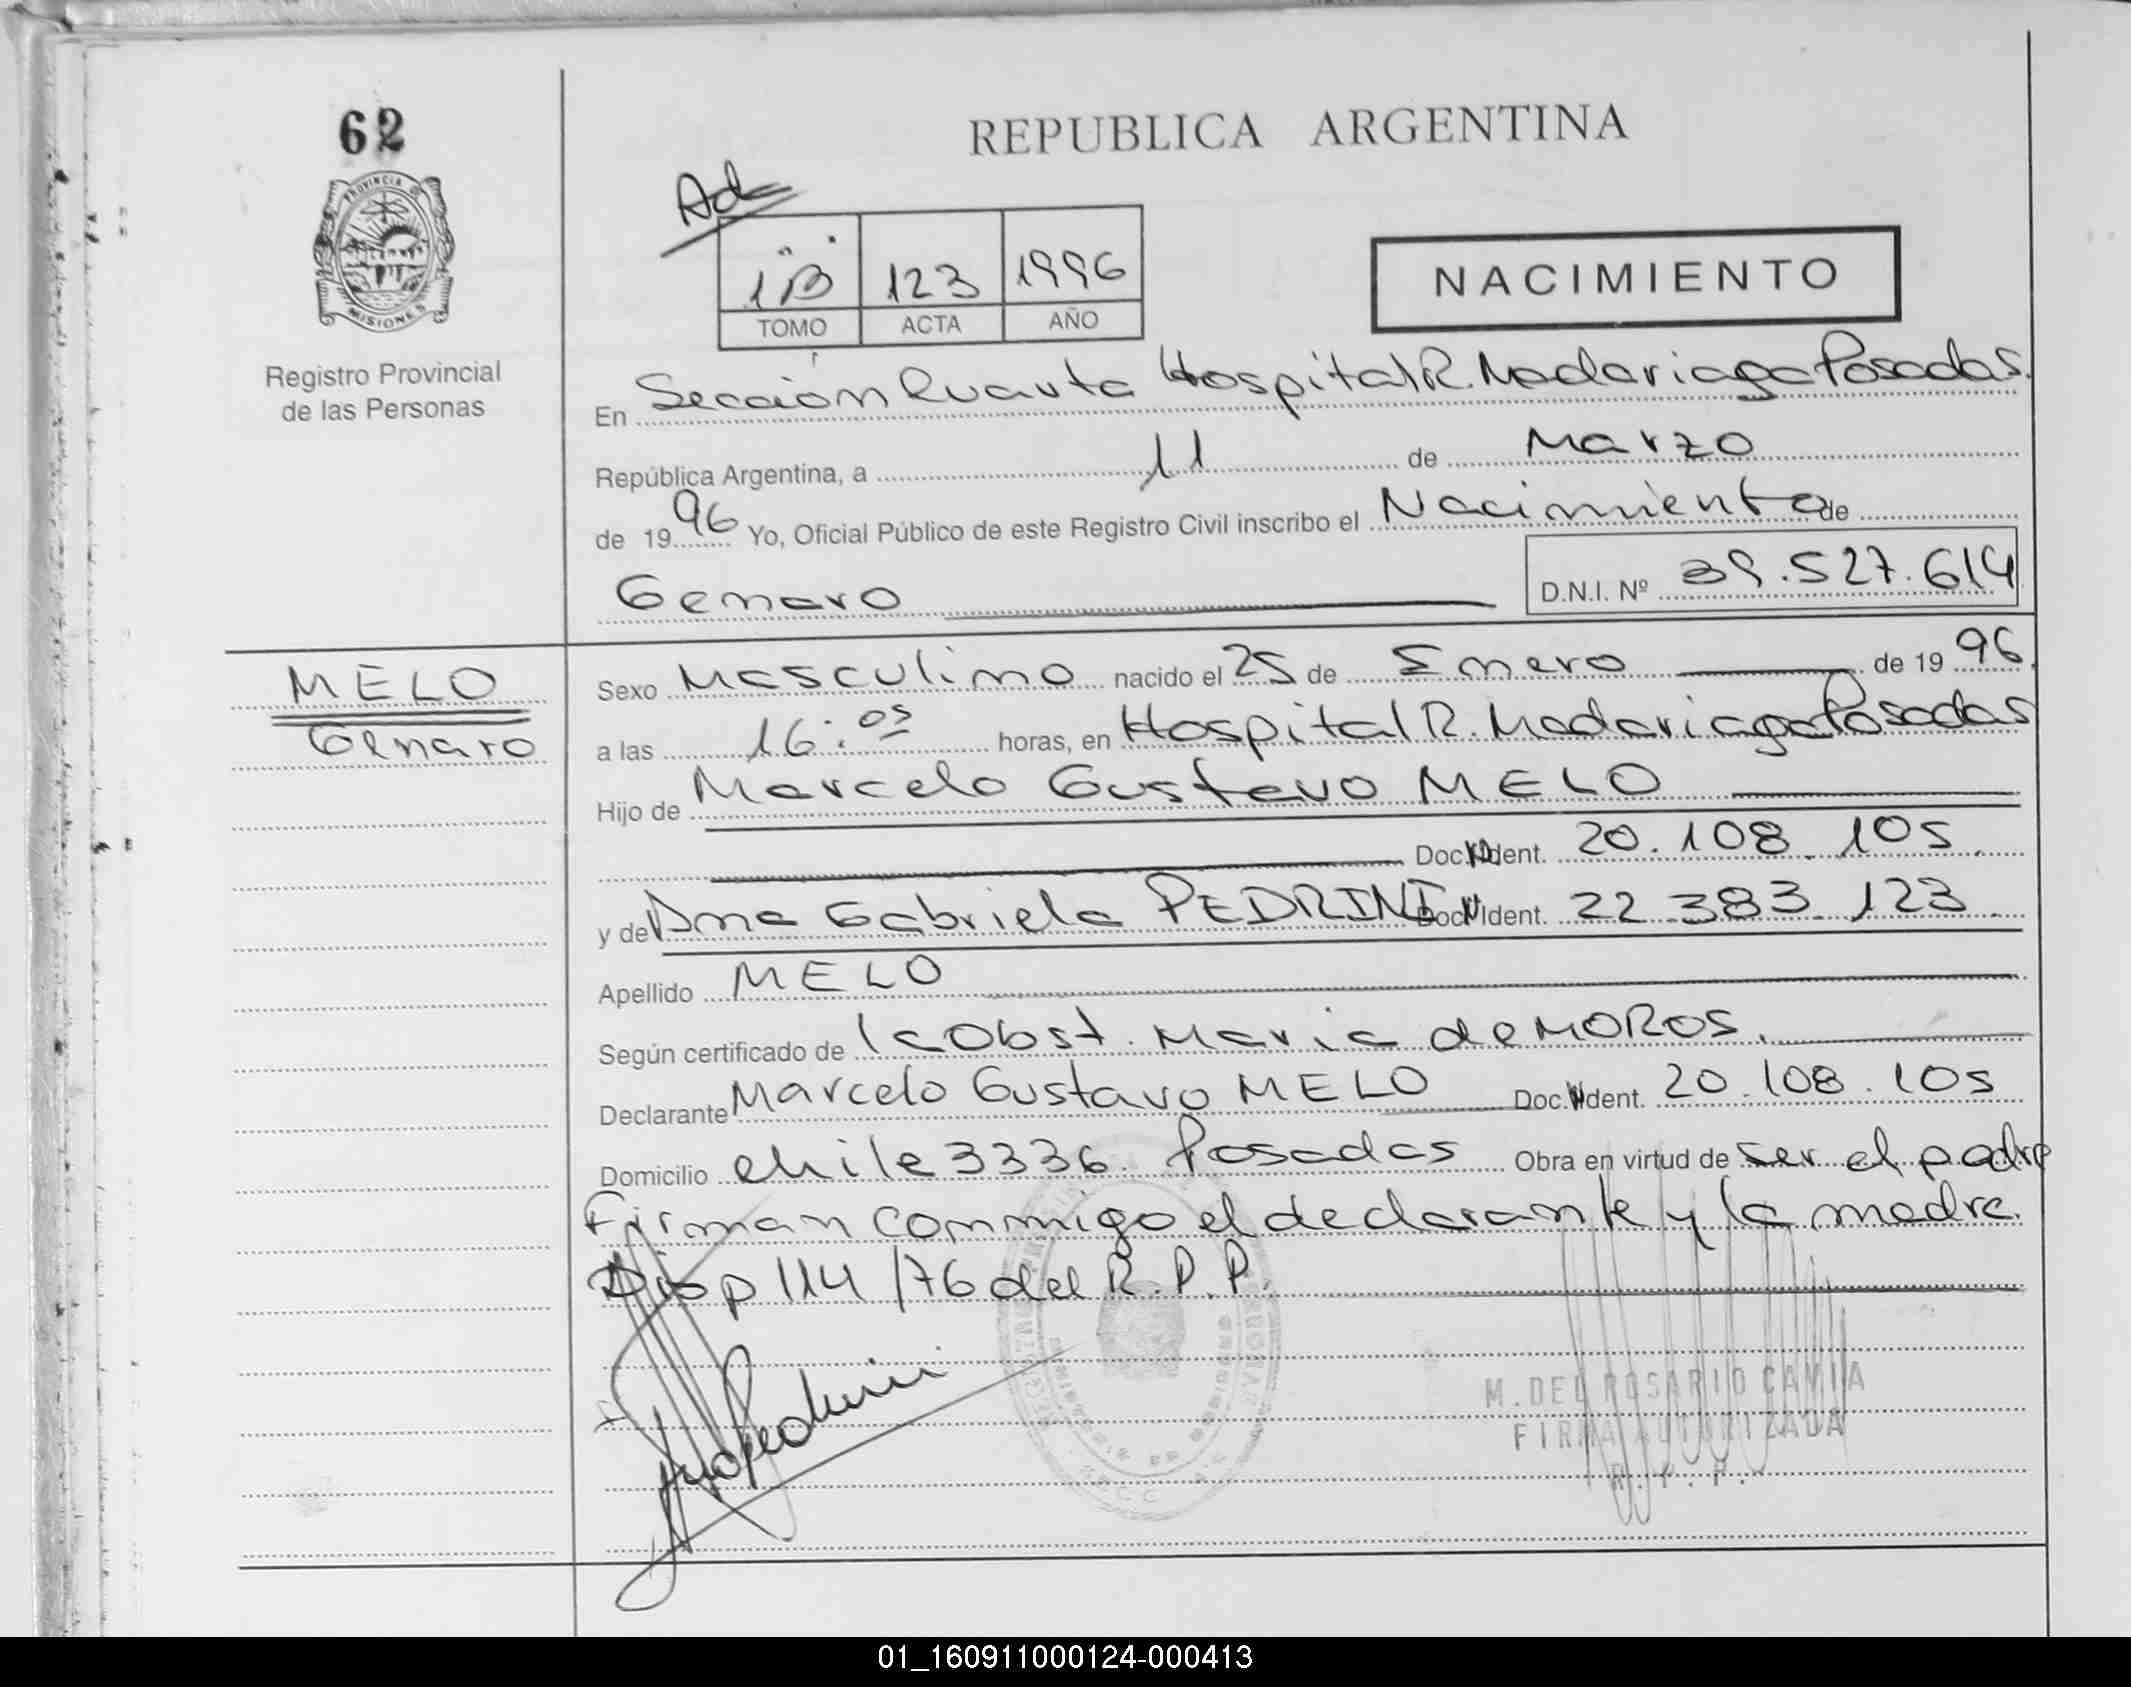 62
PROVINCIA DE
MISIONES
Registro Provincial
de las Personas
REPUBLICA ARGENTINA
Ad
1B 123 1996
TOMO ACTA AÑO
NACIMIENTO
En Sección Cuarta Hospital R. Madariaga Posadas.
República Argentina, a 11 de Marzo
de 1996 Yo, Oficial Público de este Registro Civil inscribo el Nacimiento de
Genaro
D.N.I. Nº 39.527.614
MELO
Genaro
Sexo Masculino nacido el 25 de Enero de 1996.
a las 16:05 horas, en Hospital R. Madariaga Posadas
Hijo de Marcelo Gustavo MELO
Doc. Ident. 20.108.105.
y de Ana Gabriela PEDRINI Doc. Ident. 22.383.123.
Apellido MELO
Según certificado de la Obst. Maria de MOROS.
Declarante Marcelo Gustavo MELO Doc. Ident. 20.108.105
Domicilio Chile 3336. Posadas Obra en virtud de ser el padre
Firman conmigo el declarante y la madre.
Disp 114/76 del R.P.P.
M. DEL ROSARIO CAVIA
FIRMA AUTORIZADA
R.P.P.
01_160911000124-000413